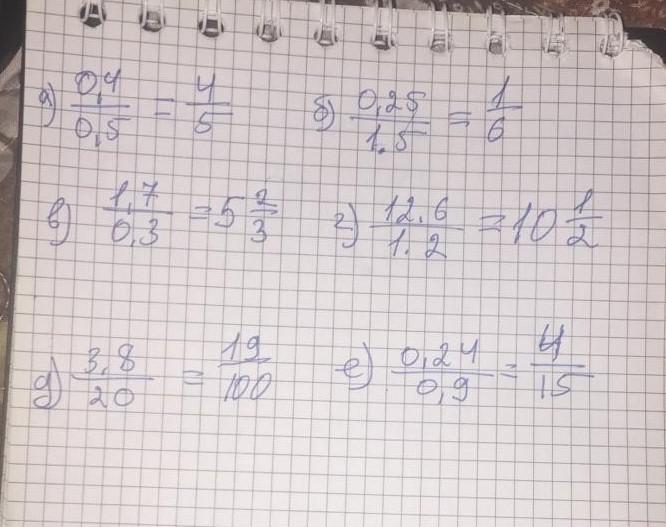 а) 0,4/0,5 = 4/5 б) 0,25/1.5 = 1/6
в) 1,7/0,3 = 5 2/3 г) 12.6/1.2 = 10 1/2
д) 3,8/20 = 19/100 е) 0,24/0,9 = 4/15